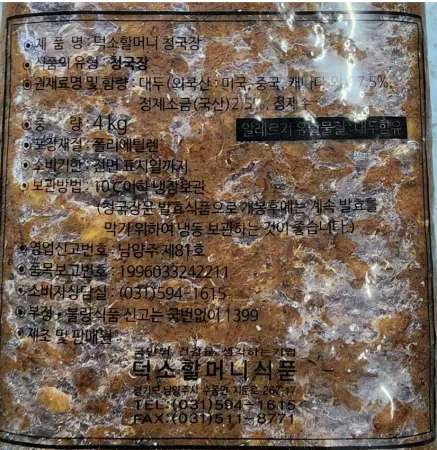 ●제 품 명 : 덕소할머니 청국장
●식품의 유형 : 청국장
●원재료명 및 함량 : 대두(외국산 : 미국, 중국, 캐나다
정제소금(국산)2.5%, 정제수
●중 량 : 4kg
알레르기 유발물질 : 대두함유
●포장재질 : 폴리에틸렌
●소비기한 : 전면 표시일까지
●보관방법 : 10℃이하 냉장보관
(청국장은 발효식품으로 개봉후에는 계속 발효를
막기 위하여 냉동 보관하는 것이 좋습니다.)
●영업신고번호 : 남양주 제81호
●품목보고번호 : 1996033242211
●소비자상담실 : (031)594-1615
●부정·불량식품 신고는 국번없이 1399
●제조 및 판매원
건강을 생각하는기업
덕소할머니식품
경기도 남양주시 수동면 지둔로 267-17
TEL:(031)594-1615
FAX:(031)511-8771